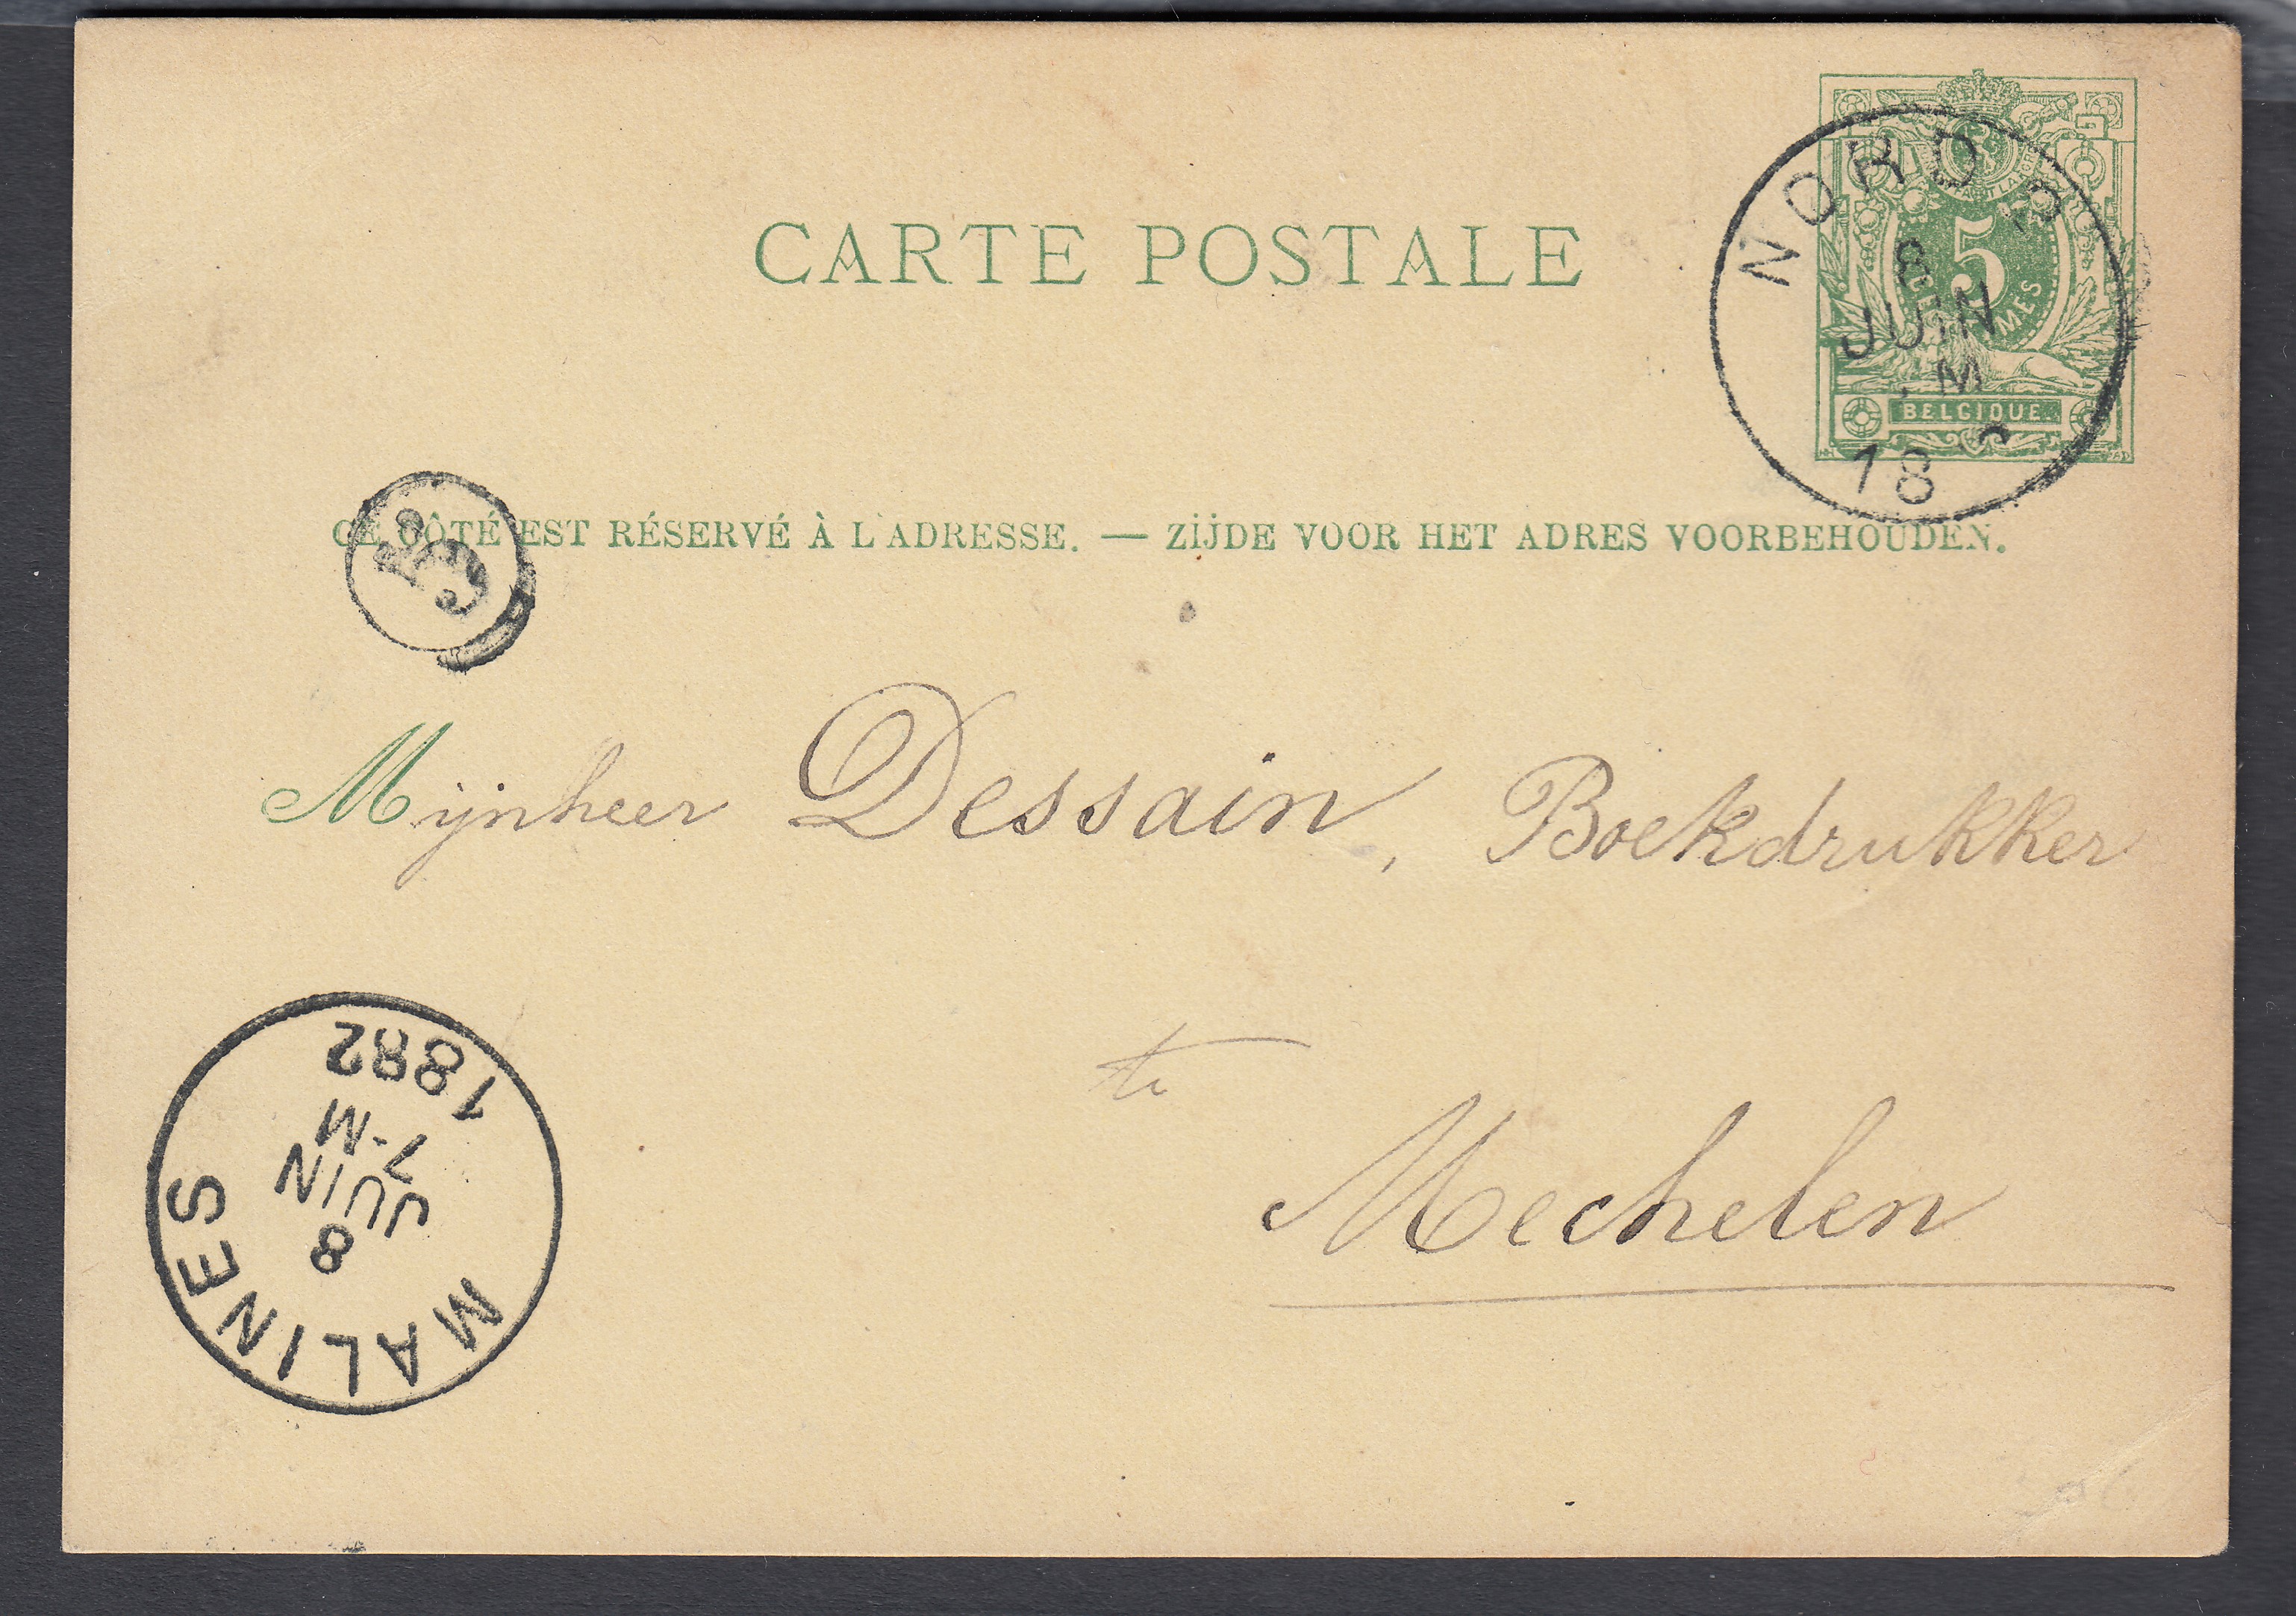 CARTE POSTALE
5
CENTIMES
BELGIQUE
NORD
8
JUIN
M
18
CE CÔTÉ EST RÉSERVÉ À L'ADRESSE. — ZIJDE VOOR HET ADRES VOORBEHOUDEN.
Mijnheer Dessain, Boekdrukker
te
Mechelen
MALINES
8
JUIN
7-M
1882